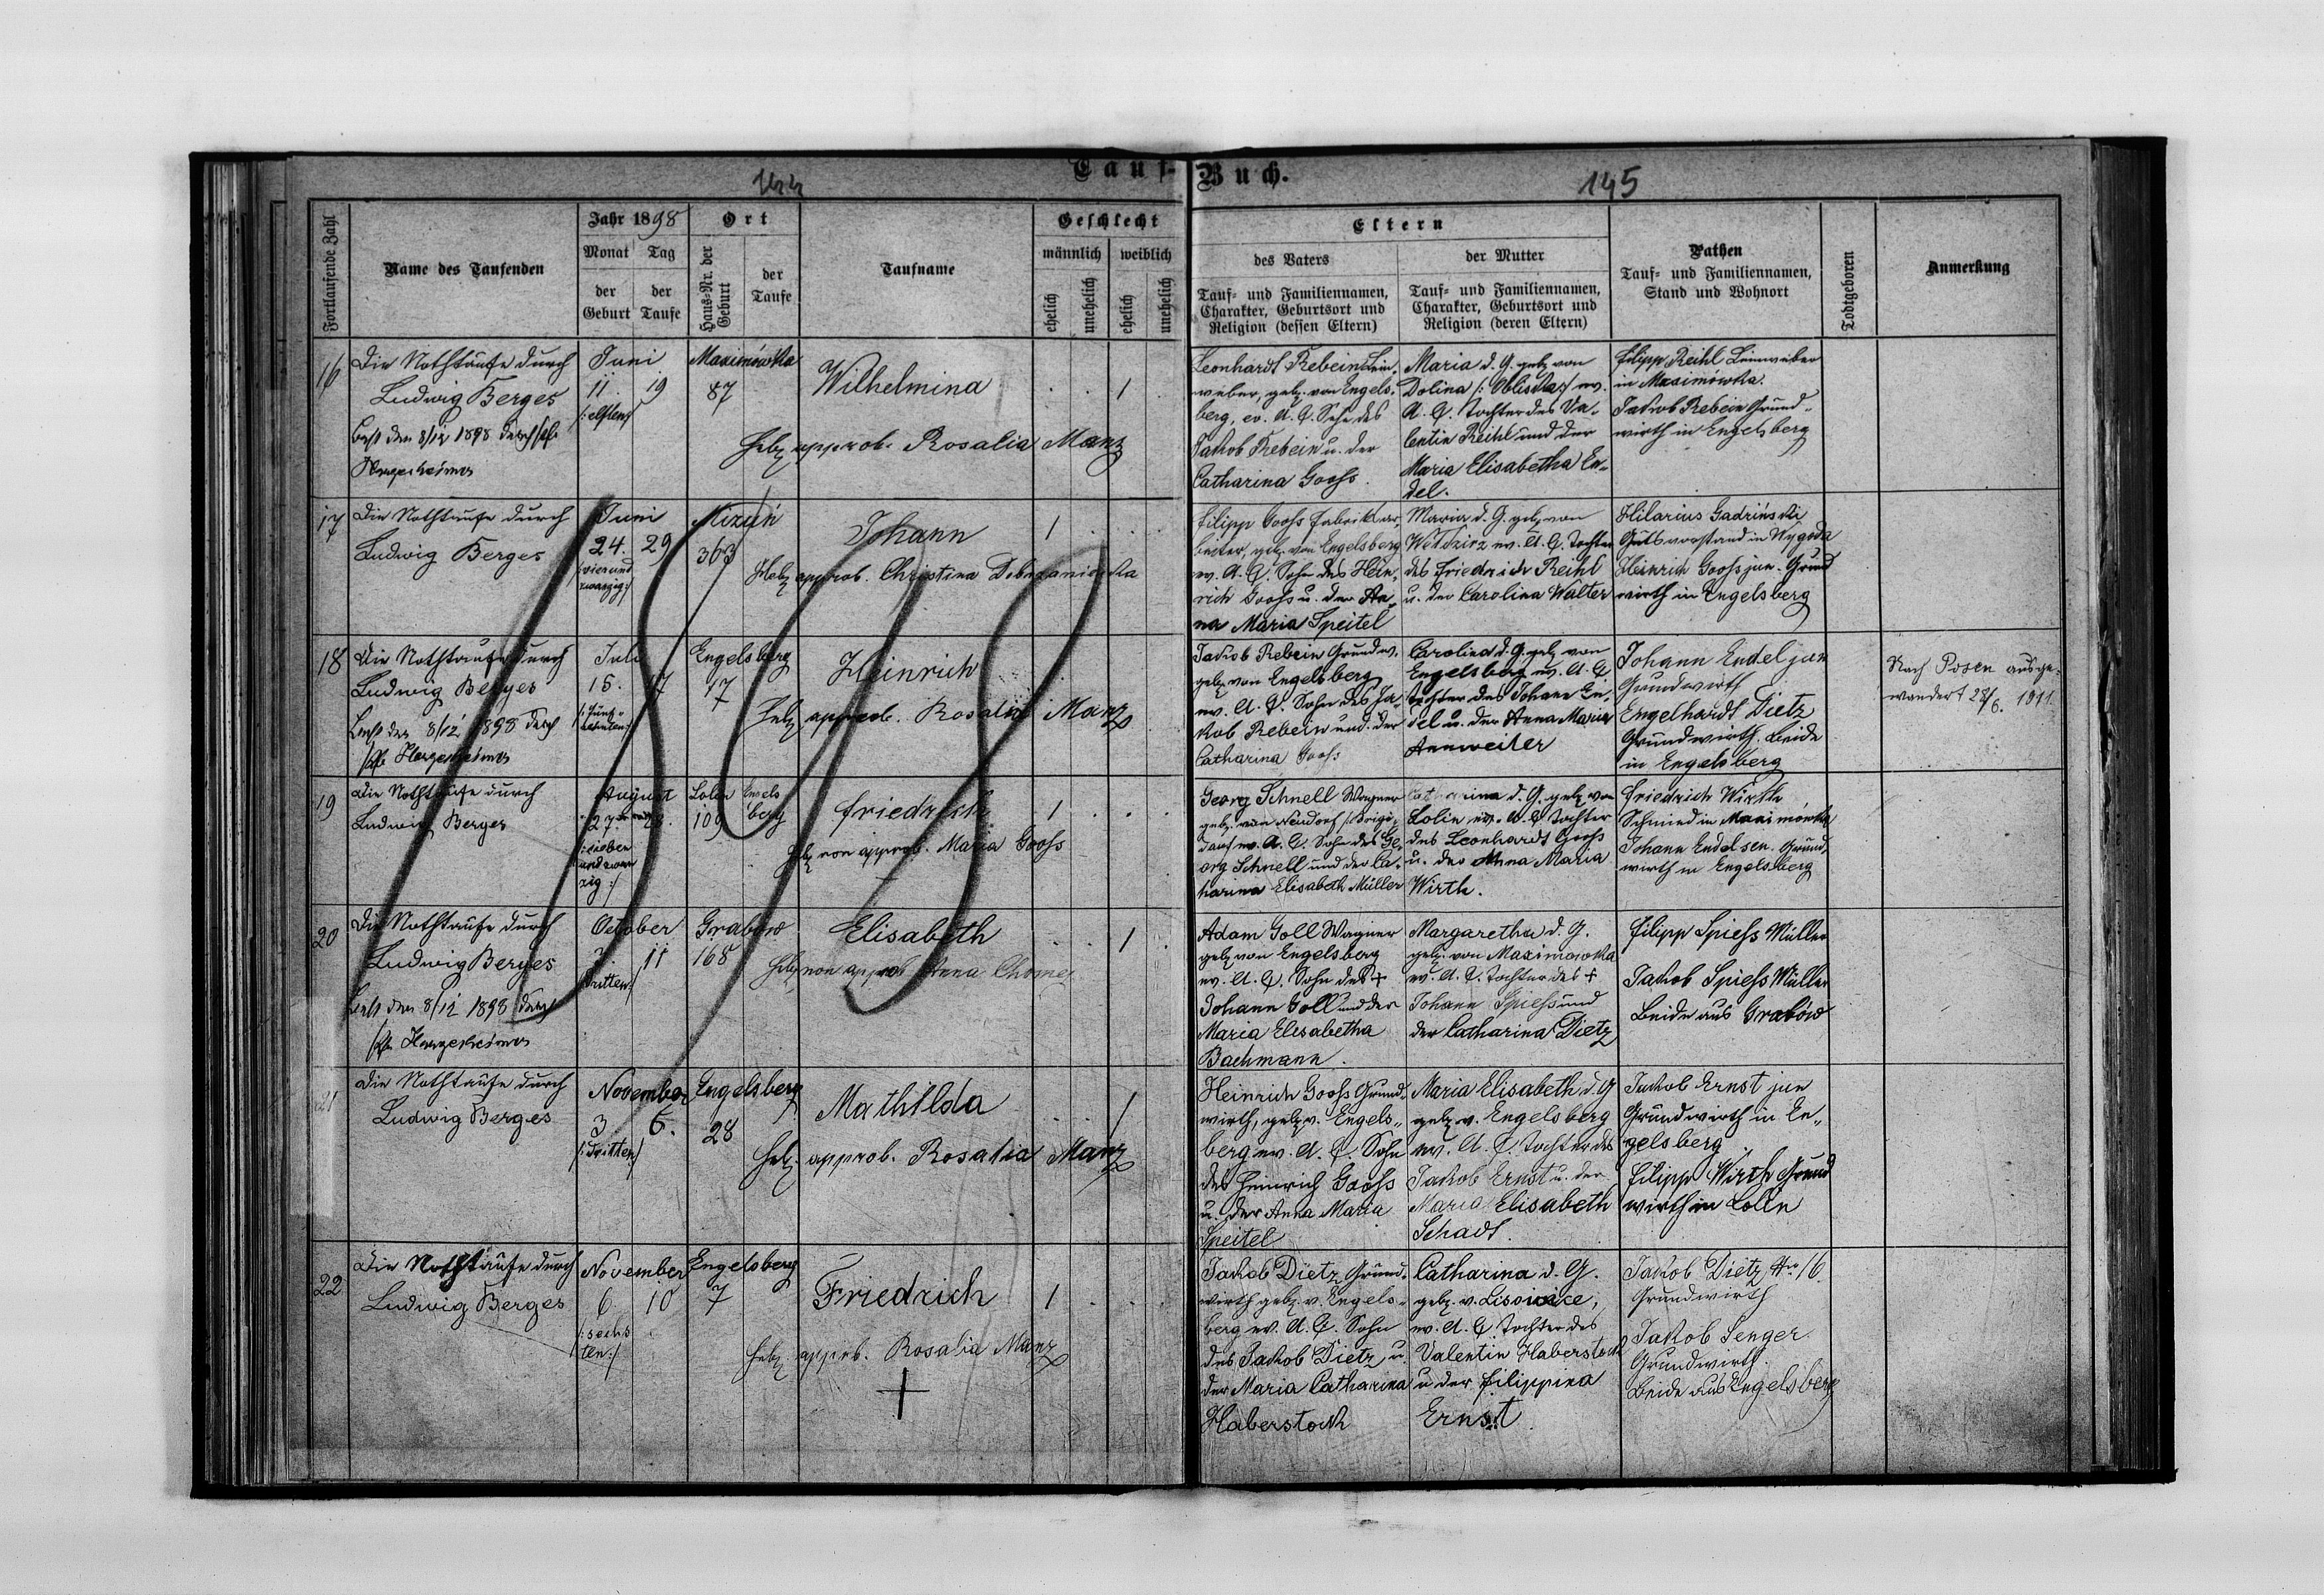 Tauf-Buch.
144
145
Fortlaufende Zahl
Name des Taufenden
Jahr 1898
Monat Tag
der Geburt
der Taufe
Ort
Haus-Nr. der Geburt
der Taufe
Taufname
Geschlecht
männlich weiblich
ehelich
unehelich
ehelich
unehelich
Eltern
des Vaters
Tauf- und Familiennamen,
Charakter, Geburtsort und
Religion (dessen Eltern)
der Mutter
Tauf- und Familiennamen,
Charakter, Geburtsort und
Religion (deren Eltern)
Pathen
Tauf- und Familiennamen,
Stand und Wohnort
Todtgeboren
Anmerkung
1898
16
Die Nothtaufe durch
Ludwig Berges
Best den 8/12 1898 durch Pfr
Hergesheimer
Juni
11. 19
/:elften:/
Maximówka
87
Wilhelmina
1
Heb. approb. Rosalia Manz
Leonhardt Rebein Lein-
weber, geb. von Engels-
berg, ev. A. C. Sohn des
Jakob Rebein u. der
Catharina Gooss.
Maria d. G. geb von
Dolina ev.
A. C. Tochter des Va-
lentin Reihl und der
Maria Elisabetha En-
del.
Filipp Reihl Leinweber
in Maximówka.
Jakob Rebein Grund-
wirth in Engelsberg
17
Die Nothtaufe durch
Ludwig Berges
Juni
24. 29
/:vierund
zwanzig:/
Mizuń
363
Johann
1
Heb. approb. Christina
Filipp Gooss Fabrikar-
beiter, geb. von Engelsberg
ev. A. C. Sohn des Hein-
rich Gooss u. der An-
na Maria Speitel
Maria d. G. geb von
Weldzirz ev. A. C. Tochter
des Friedrich Reihl
u. der Carolina Walter
Hilarius Gadziński
Gutsvorstand in Wygoda
Heinrich Gooss jun. Grund
wirth in Engelsberg
18
Die Nothtaufe durch
Ludwig Berges
Best den 8/12 1898 durch
Pfr Hergesheimer
Juli
15. 17
/:fünf-
zehnten:/
Engelsberg
17
Heinrich
Heb. approb. Rosalia Manz
Jakob Rebein Grundw.
geb. von Engelsberg
ev. A. C. Sohn des Ja-
kob Rebein und der
Catharina Gooss
Carolina d. G. geb von
Engelsberg ev. A. C.
Tochter des Johann En-
del u. der Anna Maria
Annweiler
Johann Endel jun
Grundwirth
Engelhardt Dietz
Grundwirth. Beide
in Engelsberg
Nach Posen ausge-
wandert 28/6. 1911.
19
Die Nothtaufe durch
Ludwig Berges
August
27. 28.
/:sieben
und zwan
zig:/
Lolin Engels
109 berg
Friedrich
1
Heb. non approb. Maria Gooss
Georg Schnell Wagner
geb. von Neudorf
ev. A. C. Sohn des Ge-
org Schnell und der Ca-
tharina Elisabeth Müller
Catharina d. G. geb von
Lolin ev. A. C. Tochter
des Leonhardt Gooss
u. der Anna Maria
Wirth.
Friedrich Wirth
Schmied in Maximówka
Johann Endel sen. Grund-
wirth in Engelsberg
20
Die Nothtaufe durch
Ludwig Berges
Best den 8/12 1898 durch
Pfr Hergesheimer
October
3. 11
/:dritten:/
Grabów
168
Elisabeth
1
Heb. non approb Anna
Adam Goll Wagner
geb von Engelsberg
ev. A. C. Sohn des +
Johann Goll und der
Maria Elisabetha
Bachmann.
Margaretha d. G.
geb. von Maximówka
ev. A. C. Tochter des +
Johann Spiess und
der Catharina Dietz
Filipp Spiess Müller
Jakob Spiess Müller
Beide aus Grabów
21
Die Nothtaufe durch
Ludwig Berges
November
3 6.
/:dritten:/
Engelsberg
28
Mathilda
1
Heb. approb. Rosalia Manz
Heinrich Gooss Grund-
wirth, geb. v. Engels-
berg ev. A. C. Sohn
des Heinrich Gooss
u. der Anna Maria
Speitel
Maria Elisabeth d. G
geb. v. Engelsberg
ev. A. C. Tochter des
Jakob Ernst u. der
Maria Elisabeth
Schadt.
Jakob Ernst jun
Grundwirth in En-
gelsberg
Filipp Wirth Grund
wirth in Lolin
22
Die Nothtaufe durch
Ludwig Berges
November
6 10
/:sechs
ten:/
Engelsberg
7
Friedrich
1
Heb. approb. Rosalia Manz
+
Jakob Dietz Grund-
wirth geb. v. Engels-
berg ev. A. C. Sohn
des Jakob Dietz u.
der Maria Catharina
Haberstock
Catharina d. G.
geb. v. Lisowice,
ev. A. C. Tochter des
Valentin Haberstock
u der Filippina
Ernst.
Jakob Dietz Nr. 16
Grundwirth
Jakob Senger
Grundwirth.
Beide aus Engelsberg